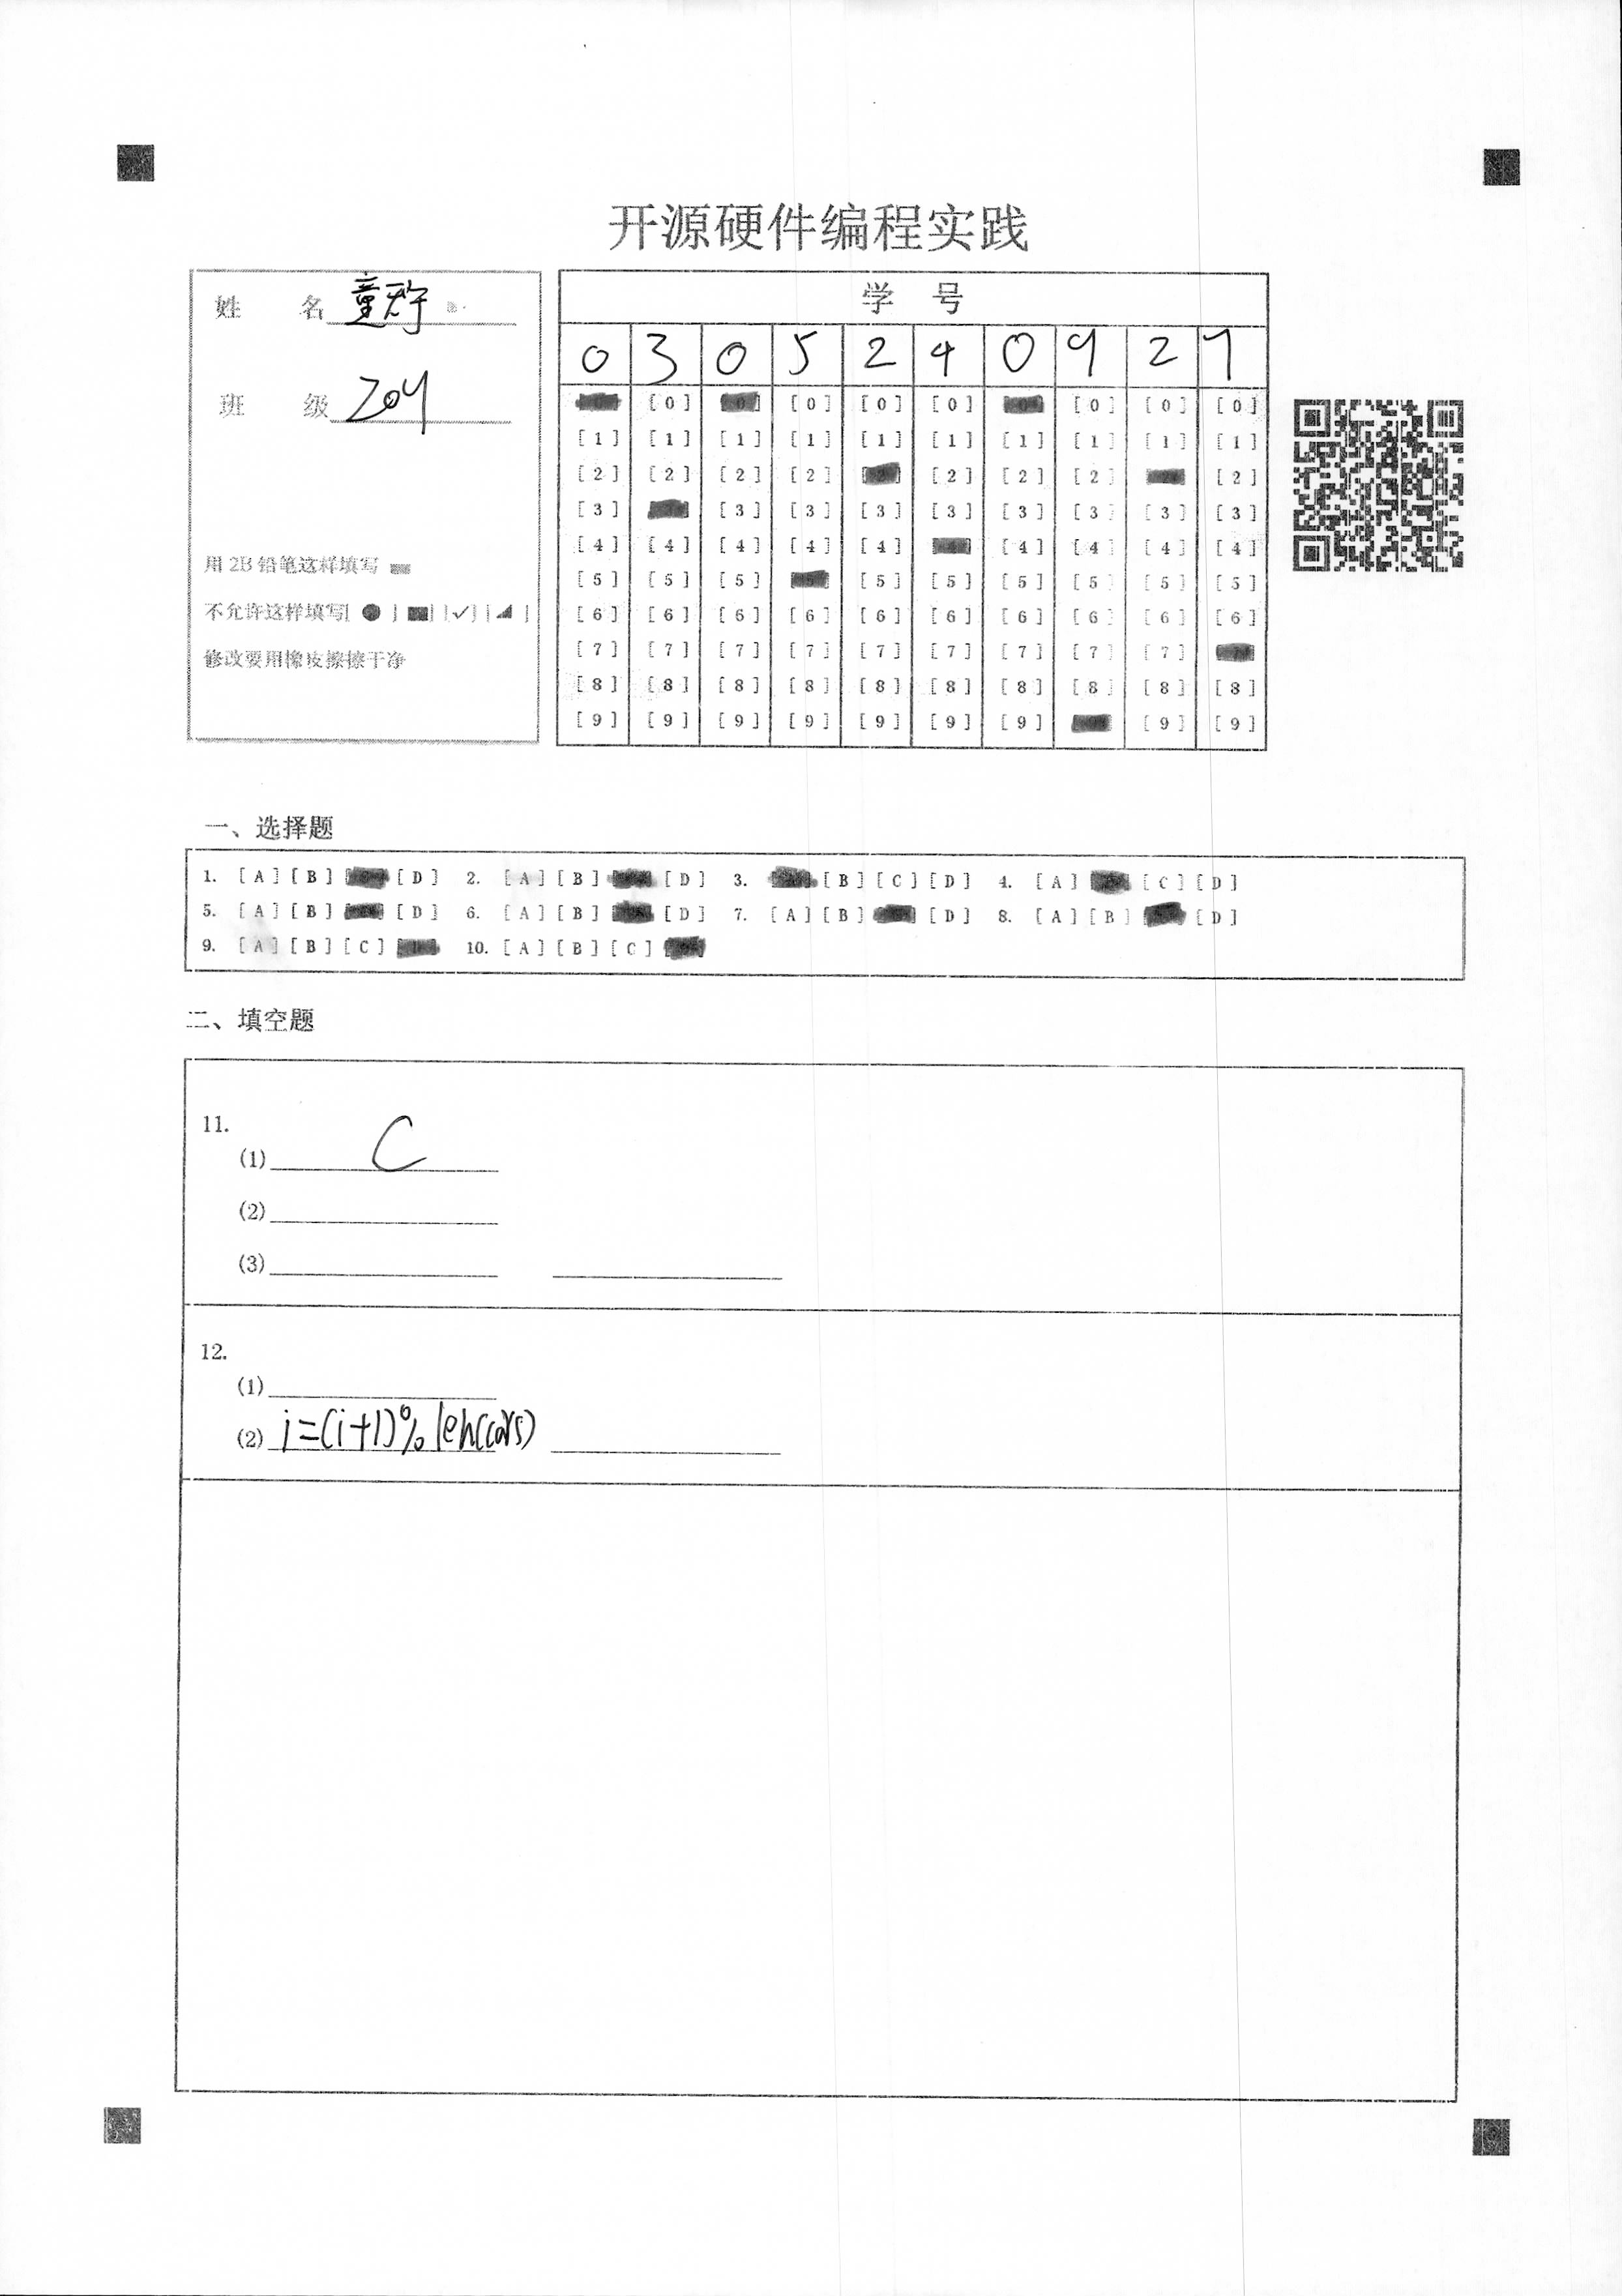 开源硬件编程实践
姓 名 童天宇
班 级 204
用 2B 铅笔这样填写
不允许这样填写[ ● ] [■] [✓] [◢ ]
修改要用橡皮擦擦干净
学 号
0 3 0 5 2 4 0 9 2 7
[0] [0] [0] [0] [0] [0] [0]
[1] [1] [1] [1] [1] [1] [1] [1] [1] [1]
[2] [2] [2] [2] [2] [2] [2] [2]
[3] [3] [3] [3] [3] [3] [3] [3] [3]
[4] [4] [4] [4] [4] [4] [4] [4] [4]
[5] [5] [5] [5] [5] [5] [5] [5] [5]
[6] [6] [6] [6] [6] [6] [6] [6] [6] [6]
[7] [7] [7] [7] [7] [7] [7] [7] [7]
[8] [8] [8] [8] [8] [8] [8] [8] [8] [8]
[9] [9] [9] [9] [9] [9] [9] [9] [9]
一、选择题
1. [A] [B] [D] 2. [A] [B] [D] 3. [B] [C] [D] 4. [A] [C] [D]
5. [A] [B] [D] 6. [A] [B] [D] 7. [A] [B] [D] 8. [A] [B] [D]
9. [A] [B] [C] 10. [A] [B] [C]
二、填空题
11.
(1) C
(2)
(3)
12.
(1)
(2) i=(i+1)%len(cars)